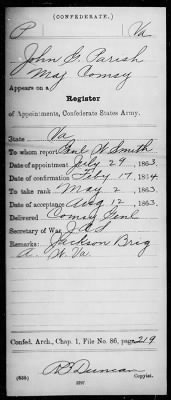 (CONFEDERATE.)
P Va
John G. Parish
Maj Comsy
Appears on a
Register
of Appointments, Confederate States Army.
State Va
To whom report Genl W Smith
Date of appointment July 29, 1863.
Date of confirmation Feby 17, 1864
To take rank May 2, 1863.
Date of acceptance Aug 12, 1863.
Delivered Comsy Genl
Secretary of War J A S
Remarks: Jackson Brig
A. W. Va.
Confed. Arch., Chap. 1, File No. 86, page 219
R Duncan
(635) Copyist.